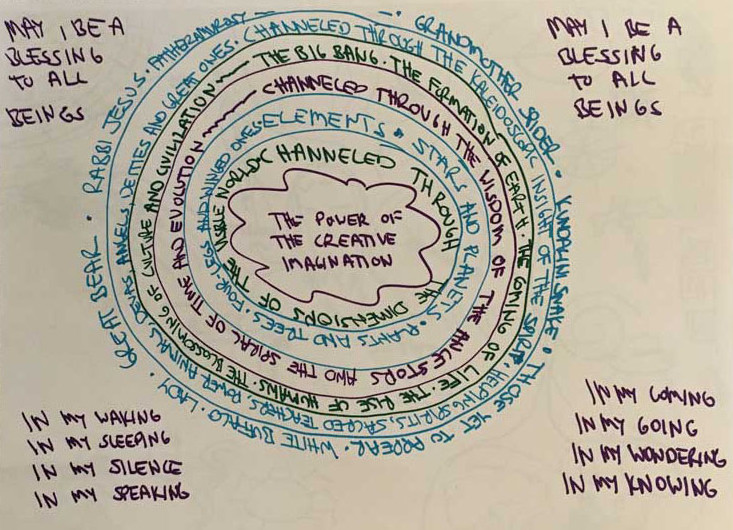 MAY I BE A
BLESSING
TO ALL
BEINGS
MAY I BE A
BLESSING
TO ALL
BEINGS
THE POWER OF
THE CREATIVE
IMAGINATION
CHANNELED THROUGH THE DIMENSIONS OF THE VISIBLE WORLD
ELEMENTS • STARS AND PLANETS • PLANTS AND TREES • FOUR LEGS AND WINGED ONES
CHANNELED THROUGH THE WISDOM OF THE ANCESTORS AND THE SPIRAL OF TIME AND EVOLUTION
THE BIG BANG • THE FORMATION OF EARTH THE COMING OF LIFE THE RISE OF HUMANS • THE BLOSSOMING OF CULTURE AND CIVILIZATION
CHANNELED THROUGH THE KALEIDOSCOPIC INSIGHT OF THE SPIRIT • HELPING SPIRITS, SACRED TEACHERS, POWER ANIMALS, DEVAS, ANGELS, DEITIES AND GREAT ONES
GRANDMOTHER SPIDER • KUNDALINI SNAKE • THOSE YET TO APPEAR • WHITE BUFFALO • LADY • GREAT BEAR • RABBI JESUS •
IN MY WAKING
IN MY SLEEPING
IN MY SILENCE
IN MY SPEAKING
IN MY COMING
IN MY GOING
IN MY WONDERING
IN MY KNOWING